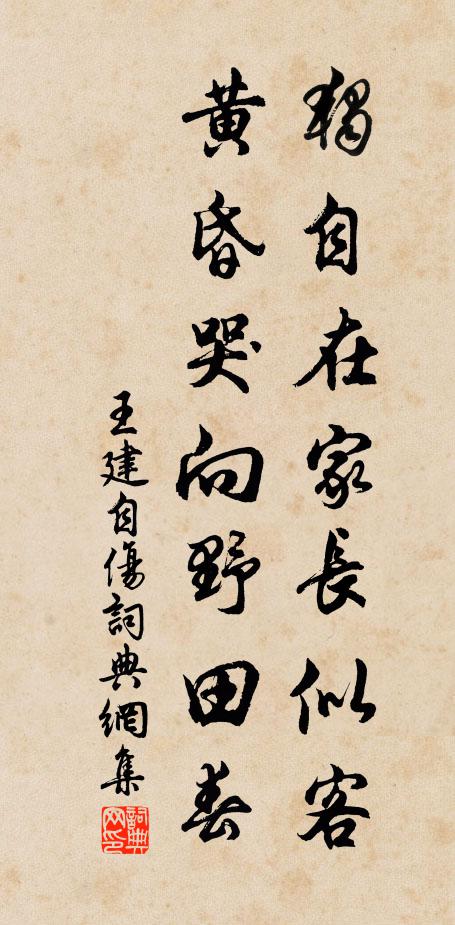 獨自在家長似客
黃昏哭向野田春
王建自傷詞典網集
詞典網印